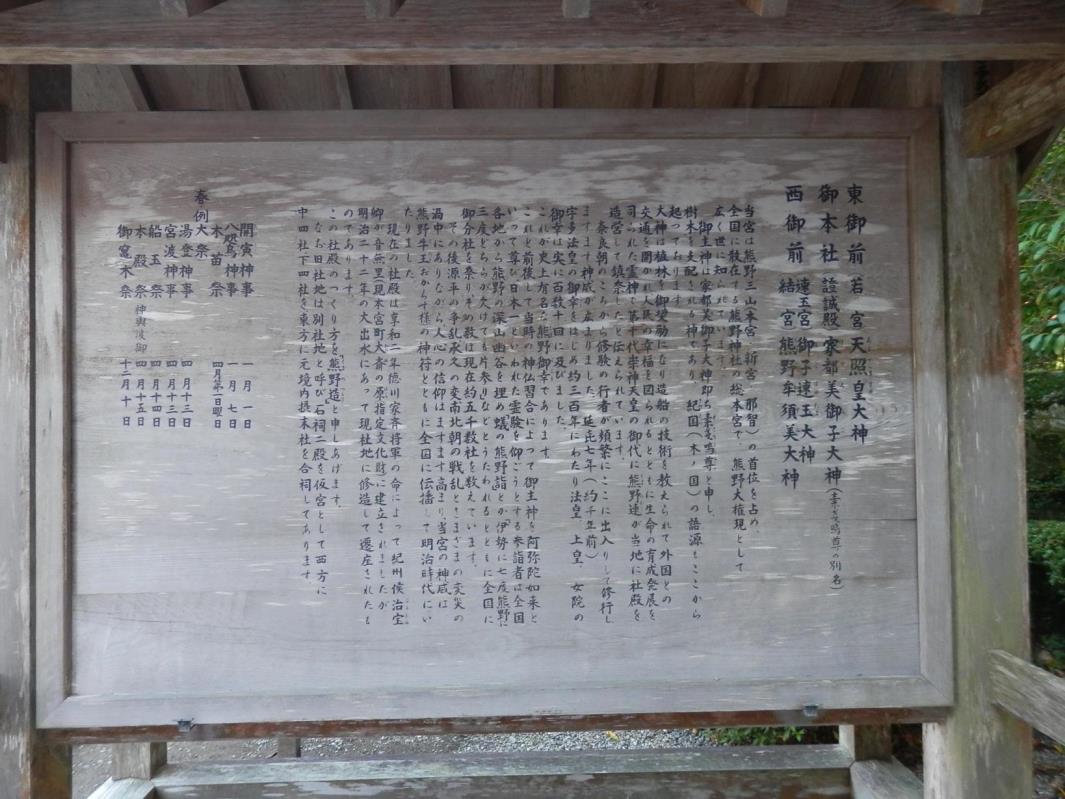 東御前 若宮 天照皇大神
御本社 證誠殿 家都美御子大神(素戔嗚尊の別名)
速玉宮 御子速玉大神
西御前 結宮 熊野牟須美大神
当宮は熊野三山(本宮、新宮、那智)の首位を占め、
全国に散在する熊野神社の総本宮で、熊野大権現として
広く世に知られています。
御主神は家都美御子大神即ち素戔嗚尊と申し、
樹木を支配される神であり、紀国(木ノ国)の語源もここから
起っております。
大神は植林を御奨励になり造船の技術を教えられて外国との
交通を開かれ人民の幸福を図られるとともに生命の育成発展を
司られた霊神で第十代崇神天皇の御代に熊野連が当地に社殿を
造営して鎮祭したと伝えられています。
奈良朝のころから修験の行者が頻繁にここに出入りして修行し
ますます神威が広まりました。延喜七年(約千年前)
宇多法皇の御幸をはじめ約三百年にわたり法皇、上皇、女院の
御幸は実に百数十回に及びました。
これが史上有名な熊野御幸であります。
これと前後して当時の神仏習合によって御主神を阿弥陀如来と
いって尊び「日本一」といわれた霊験を仰ごうとする参詣者は全国
各地から熊野の深山幽谷を埋め「蟻の熊野詣」とか「伊勢に七度熊野に
三度どちらが欠けても片参り」などとうたわれるとともに全国に
御分社を祭りその数は現在約五千数社を数えています。
その後源平の争乱承久の変南北朝の戦乱とさまざまの変災の
渦中にありながら人心の信仰はますます高まり当宮の神威は
熊野牛王おからす様の神符とともに全国に伝播して明治時代にい
たりました。
現在の社殿は享和二年徳川家斉将軍の命によって紀州侯治宝
卿が音無里(現本宮町大斎の原指定文化財)に建立されましたが
明治二十二年の大出水にあって現社地に修造して遷座されたも
のであります。
この社殿のつくり方を「熊野造」と申しあげます。
なお旧社地は別社地と呼び、石祠二殿を仮宮として西方に
中四社下四社を東方に元境内摂末社を合祠してあります。
春例大祭
開寅神事 一月一日
八咫烏神事 一月七日
本苗祭 四月第一日曜日
湯登神事 四月十三日
宮渡神事 四月十三日
船玉祭 四月十四日
本殿祭 神輿渡御 四月十五日
御竃木祭 十二月十日